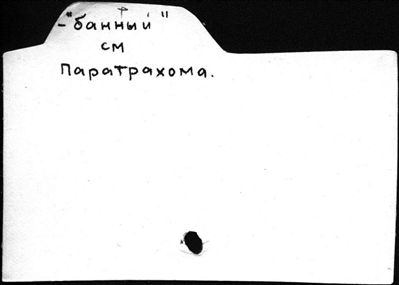 -"банный"
см
Паратрахома.